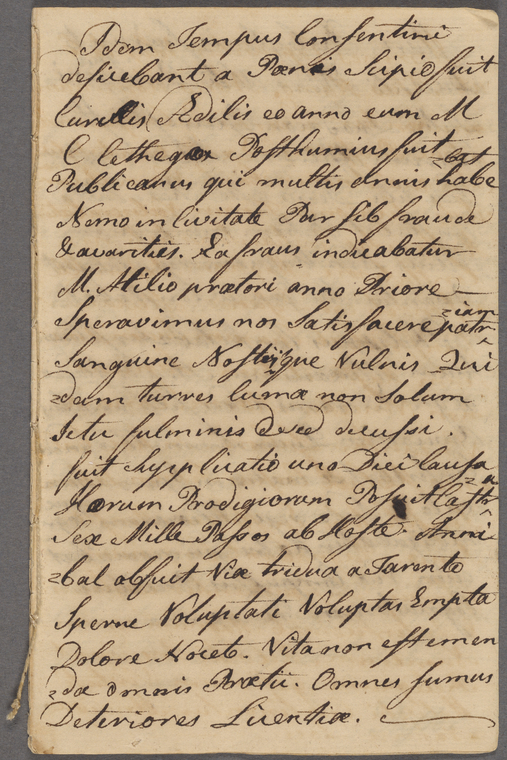 Idem Tempus Consentini
deficebant a Pœnis Scipio fuit
Curulis Ædilis eo anno cum M
C Cethego Posthumius fuit
Publicanus qui multis annis habe
=bat
Nemo in Civitate Par sib fraude
& avarities. Ea fraus indicabatur
M. Atilio prætori anno Priore
Speravimus nos Satisfacere patr
=iam
Sanguine Nostrisque Vulnis Qui
=dam turres Cumæ non Solum
Ictu fulminis sed decussi.
fuit Supplicatio uno Diei Causa
Horum Prodigiorum Posuit Castr
=a
Sex Mille Passos ab Hoste. Anni
=bal abfuit Viæ tridua a Tarento
Sperne Voluptati Voluptas Empta
Dolore Nocet. Vita non est emen
=da omnis Prætii. Omnes sumus
Deteriores Licentiæ.